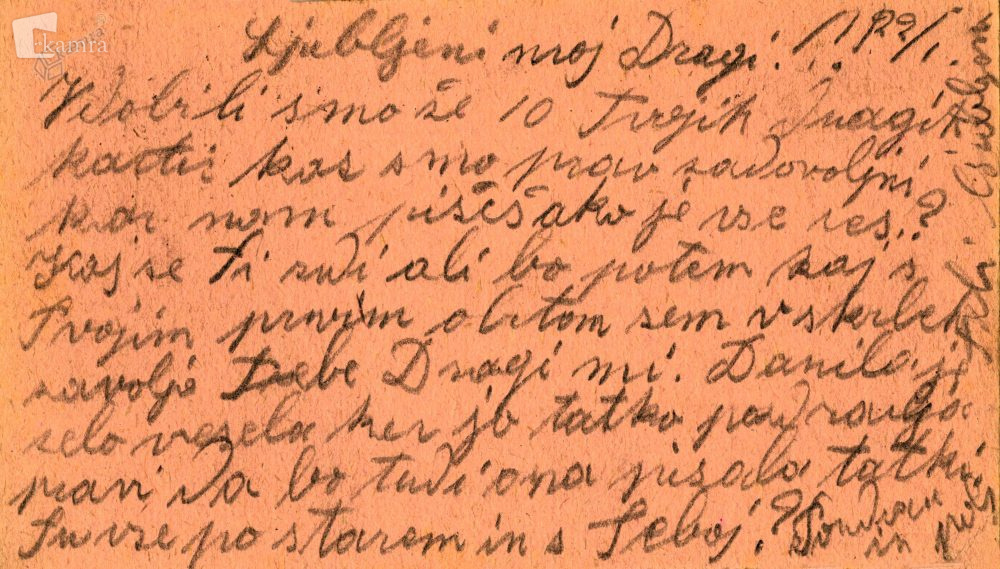 kamra
Ljubljeni moj Dragi!
Vdobili smo že 10 Tvojih Dragih
kartic kar smo prav zadovoljni
kar nam pišeš ako je vse res?
Kaj se Ti zdi ali bo potem kaj s
Tvojim prvim obitom sem v skrbeh
zavoljo Tebe Dragi mi. Danila je
zelo vesela ker jo tatko pozdravlja
pravi da bo tudi ona pisala tatki
Tu vse po starem in s Teboj? Pozdrav
in